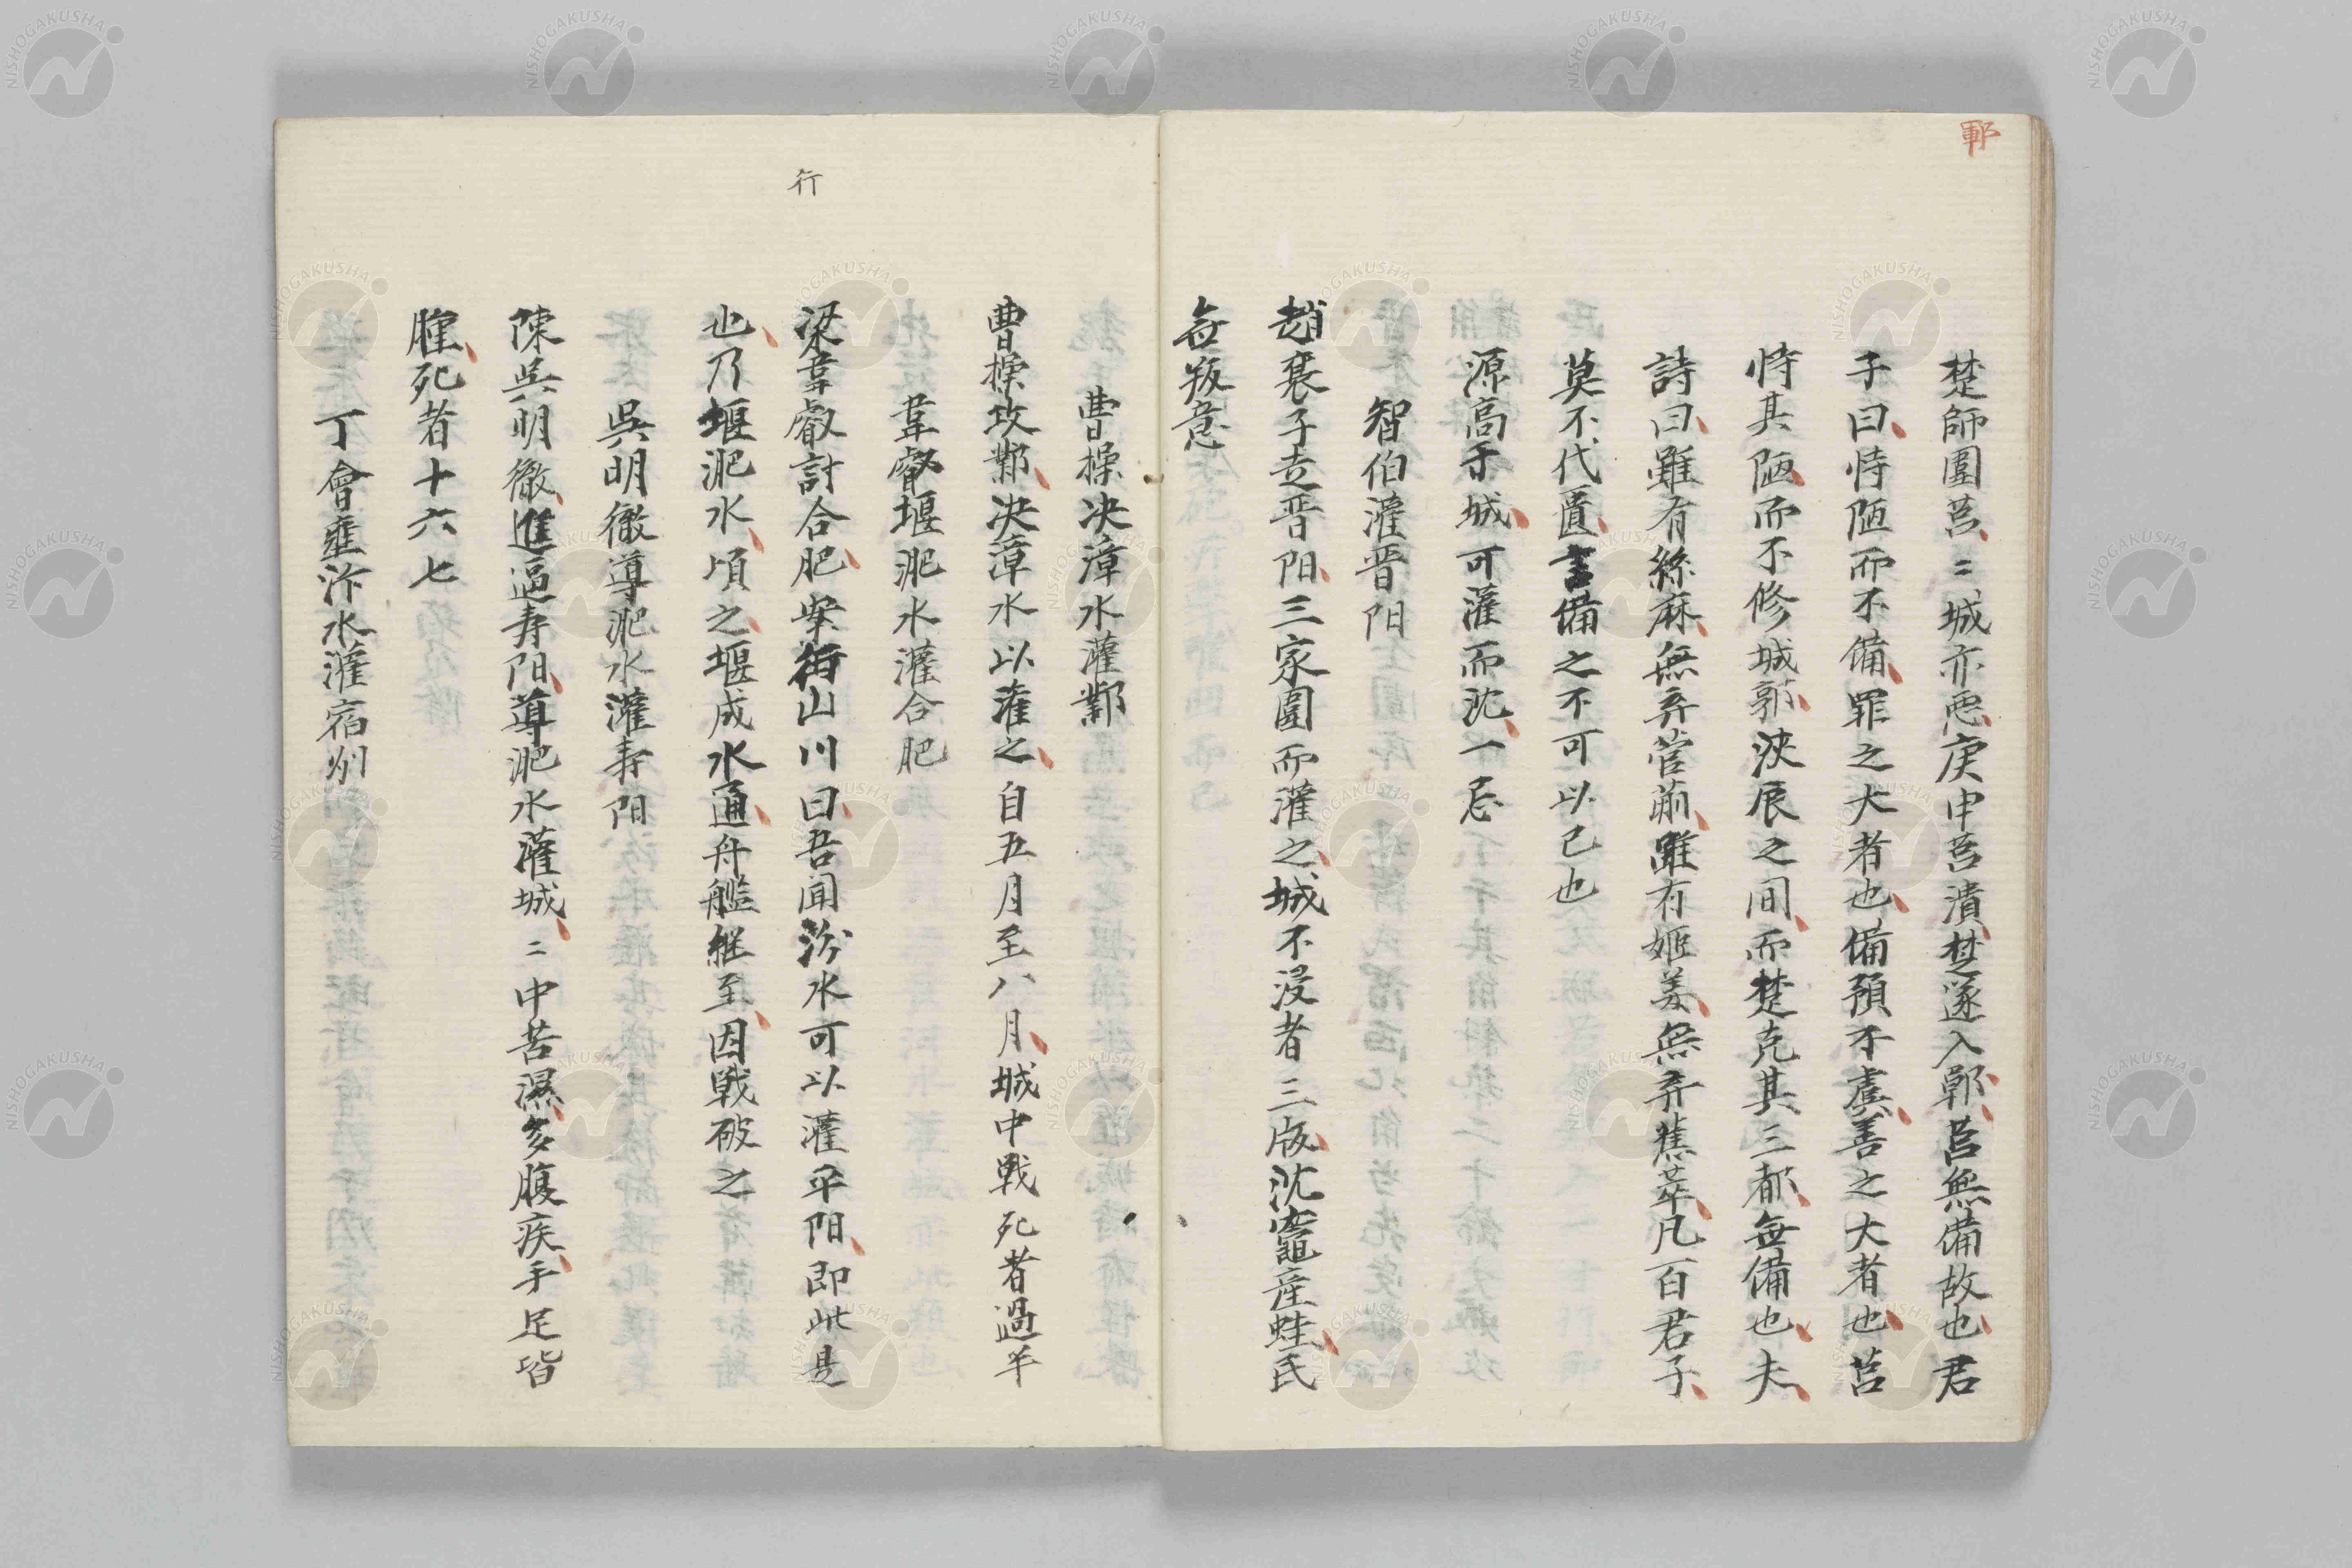 鄆
楚師圍莒〻城亦悪庚申莒潰楚遂入鄆莒無備故也君
子曰恃陋而不備罪之大者也備預不虞善之大者也莒
恃其陋而不修城郭浹辰之間而楚克其三都無備也夫
詩曰雖有絲麻無弃菅蒯雖有姬姜無弃蕉萃凡百君子
莫不代匱言備之不可以已也
源高于城可灌而沈一忌
智伯灌晋陽
趙襄子走晋陽三家圍而灌之城不浸者三版沈竈産蛙民
無叛意
曹操决漳水灌鄴
曹操攻鄴决漳水以灌之自五月至八月城中戦死者過半
韋叡堰淝水灌合肥
行
梁韋叡討合肥案街山川曰吾聞汾水可以灌平陽即此是
也乃堰淝水頃之堰成水通舟艦継至因戰破之
呉明徹導淝水灌寿陽
陳呉明徹進逼寿陽導淝水灌城〻中苦濕多腹疾手足皆
腫死者十六七
丁會壅汴水灌宿州
NISHOGAKUSHA